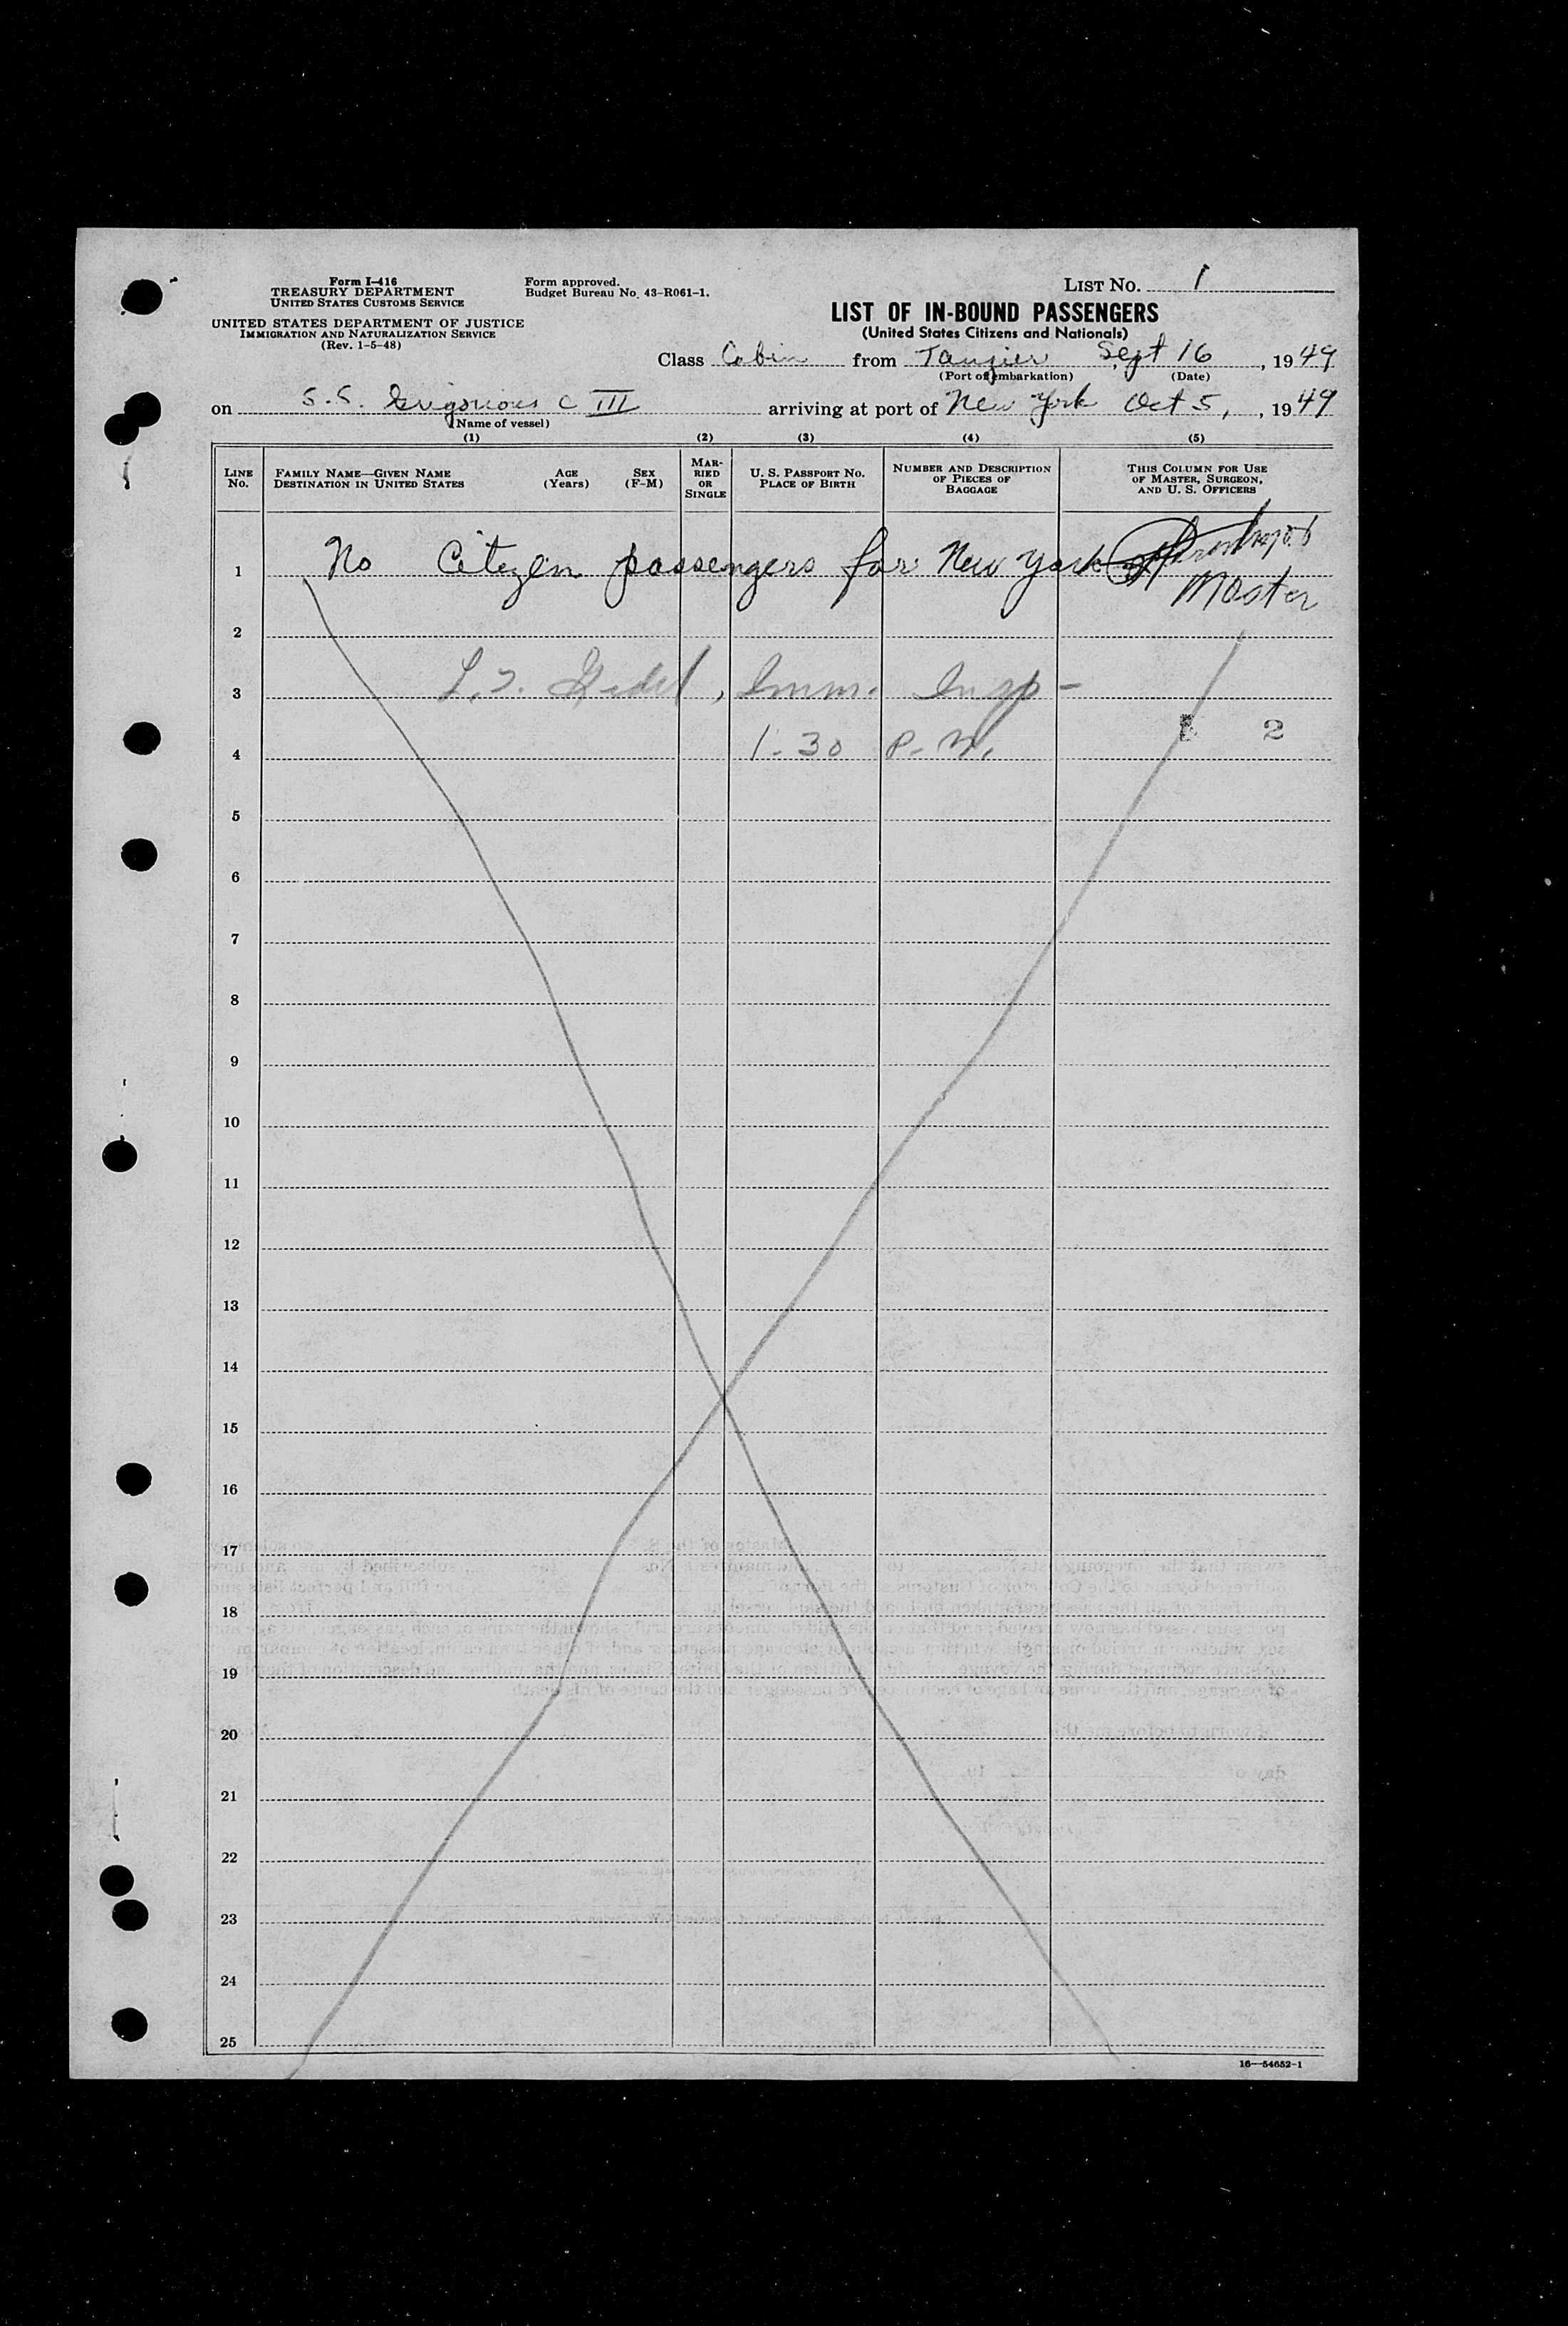 Form I-416
TREASURY DEPARTMENT
UNITED STATES CUSTOMS SERVICE
UNITED STATES DEPARTMENT OF JUSTICE
IMMIGRATION AND NATURALIZATION SERVICE
(Rev. 1-5-48)
Form approved.
Budget Bureau No. 43-R061-1.
LIST NO. 1
LIST OF IN-BOUND PASSENGERS
(United States Citizens and Nationals)
Class Cabin from Tangier, Sept 16, 1949
(Port of embarkation) (Date)
on S.S. Grigorios C III arriving at port of New York Oct 5, , 1949
(Name of vessel)
(1) (2) (3) (4) (5)
LINE NO.
FAMILY NAME—GIVEN NAME
DESTINATION IN UNITED STATES
AGE (Years)
SEX (F-M)
MARRIED OR SINGLE
U. S. PASSPORT NO.
PLACE OF BIRTH
NUMBER AND DESCRIPTION OF PIECES OF BAGGAGE
THIS COLUMN FOR USE OF MASTER, SURGEON, AND U. S. OFFICERS
1 No Citizen passengers for New York
Master
2
3 Imm. Insp-
2
4 1-30 P.M.
5
6
7
8
9
10
11
12
13
14
15
16
17
18
19
20
21
22
23
24
25
16—54652-1